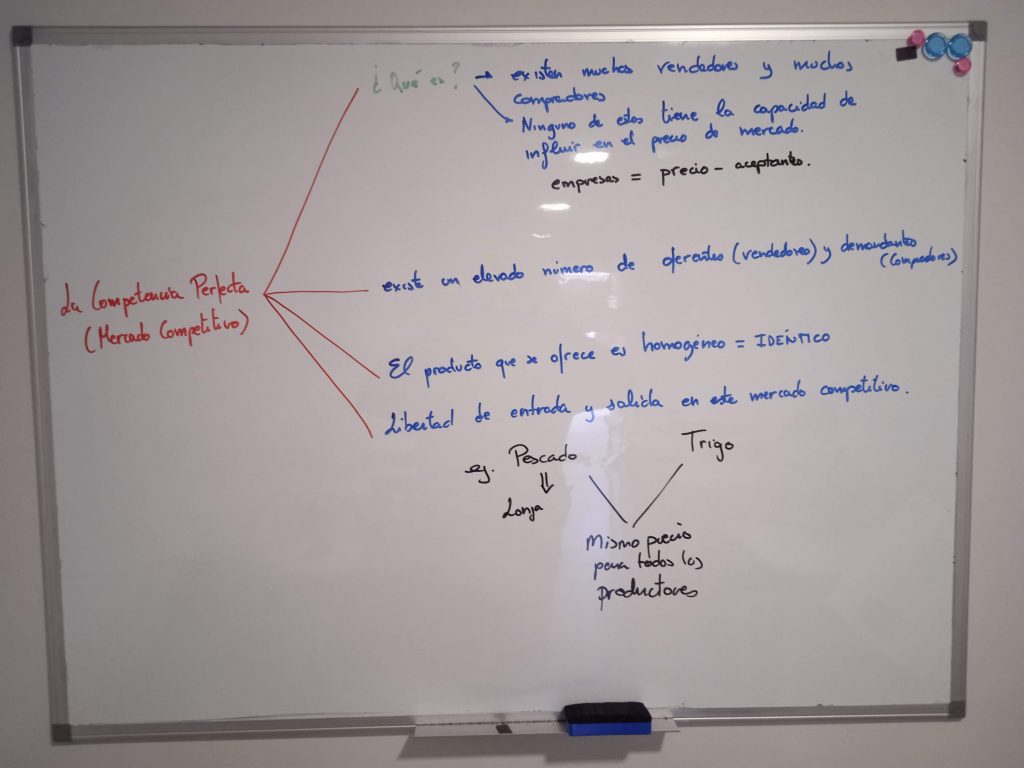 ¿Qué es?
→ existen muchos vendedores y muchos
compradores
Ninguno de estos tiene la capacidad de
influir en el precio de mercado.
empresas = precio - aceptantes.
La Competencia Perfecta
(Mercado Competitivo)
existe un elevado número de oferentes (vendedores) y demandantes
(compradores)
El producto que se ofrece es homogéneo = IDÉNTICO
Libertad de entrada y salida en este mercado competitivo.
ej. Pescado
Trigo
⇓
Lonja
Mismo precio
para todos los
productores